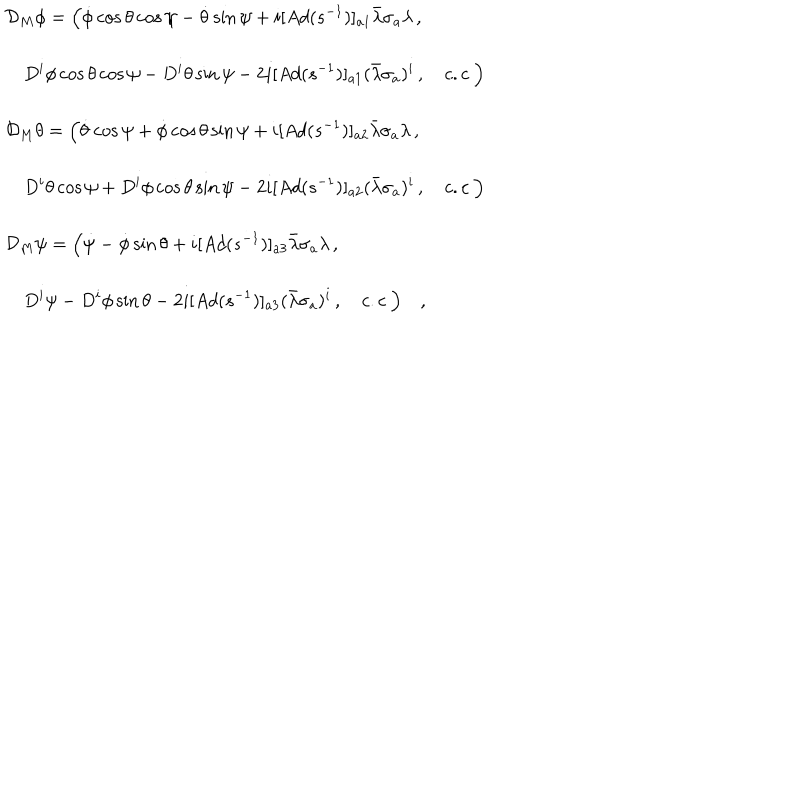 𝒟_M ϕ = ( ϕ̇ cos θ cos ψ − θ̇ sin ψ + i[Ad(s⁻¹)]_{a1} λ̄σ_a λ ,
D^i ϕ cos θ cos ψ − D^i θ sin ψ − 2i[Ad(s⁻¹)]_{a1} (λ̄σ_a)^i , c.c )
𝒟_M θ = ( θ̇ cos ψ + ϕ̇ cos θ sin ψ + i[Ad(s⁻¹)]_{a2} λ̄σ_a λ ,
D^i θ cos ψ + D^i ϕ cos θ sin ψ − 2i[Ad(s⁻¹)]_{a2} (λ̄σ_a)^i , c.c )
𝒟_M ψ = ( ψ̇ − ϕ̇ sin θ + i[Ad(s⁻¹)]_{a3} λ̄σ_a λ ,
D^i ψ − D^i ϕ sin θ − 2i[Ad(s⁻¹)]_{a3} (λ̄σ_a)^i , c.c ) ,